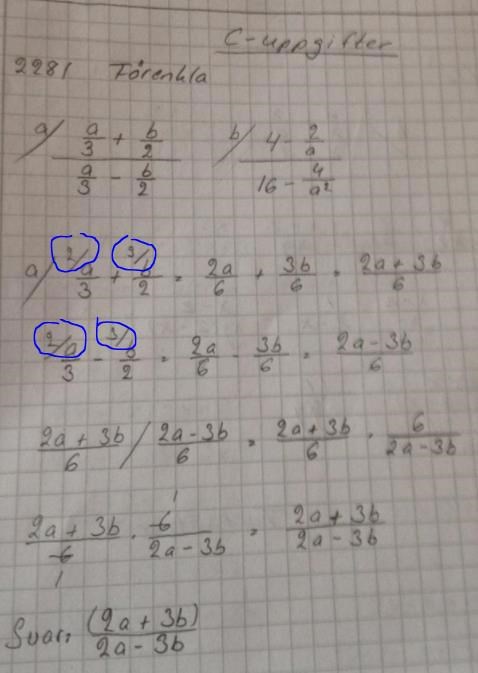 C-uppgifter
2281 Förenkla
a) (a/3 + b/2) / (a/3 - b/2) b) (4 - 2/a) / (16 - 4/a²)
a) 2/a/3 + 3/b/2 = 2a/6 + 3b/6 = (2a + 3b)/6
2/a/3 - 3/b/2 = 2a/6 - 3b/6 = (2a - 3b)/6
(2a + 3b)/6 / (2a - 3b)/6 = (2a + 3b)/6 · 6/(2a - 3b)
(2a + 3b)/6 1 · 6 1/(2a - 3b) = (2a + 3b)/(2a - 3b)
Svar: (2a + 3b)/2a - 3b